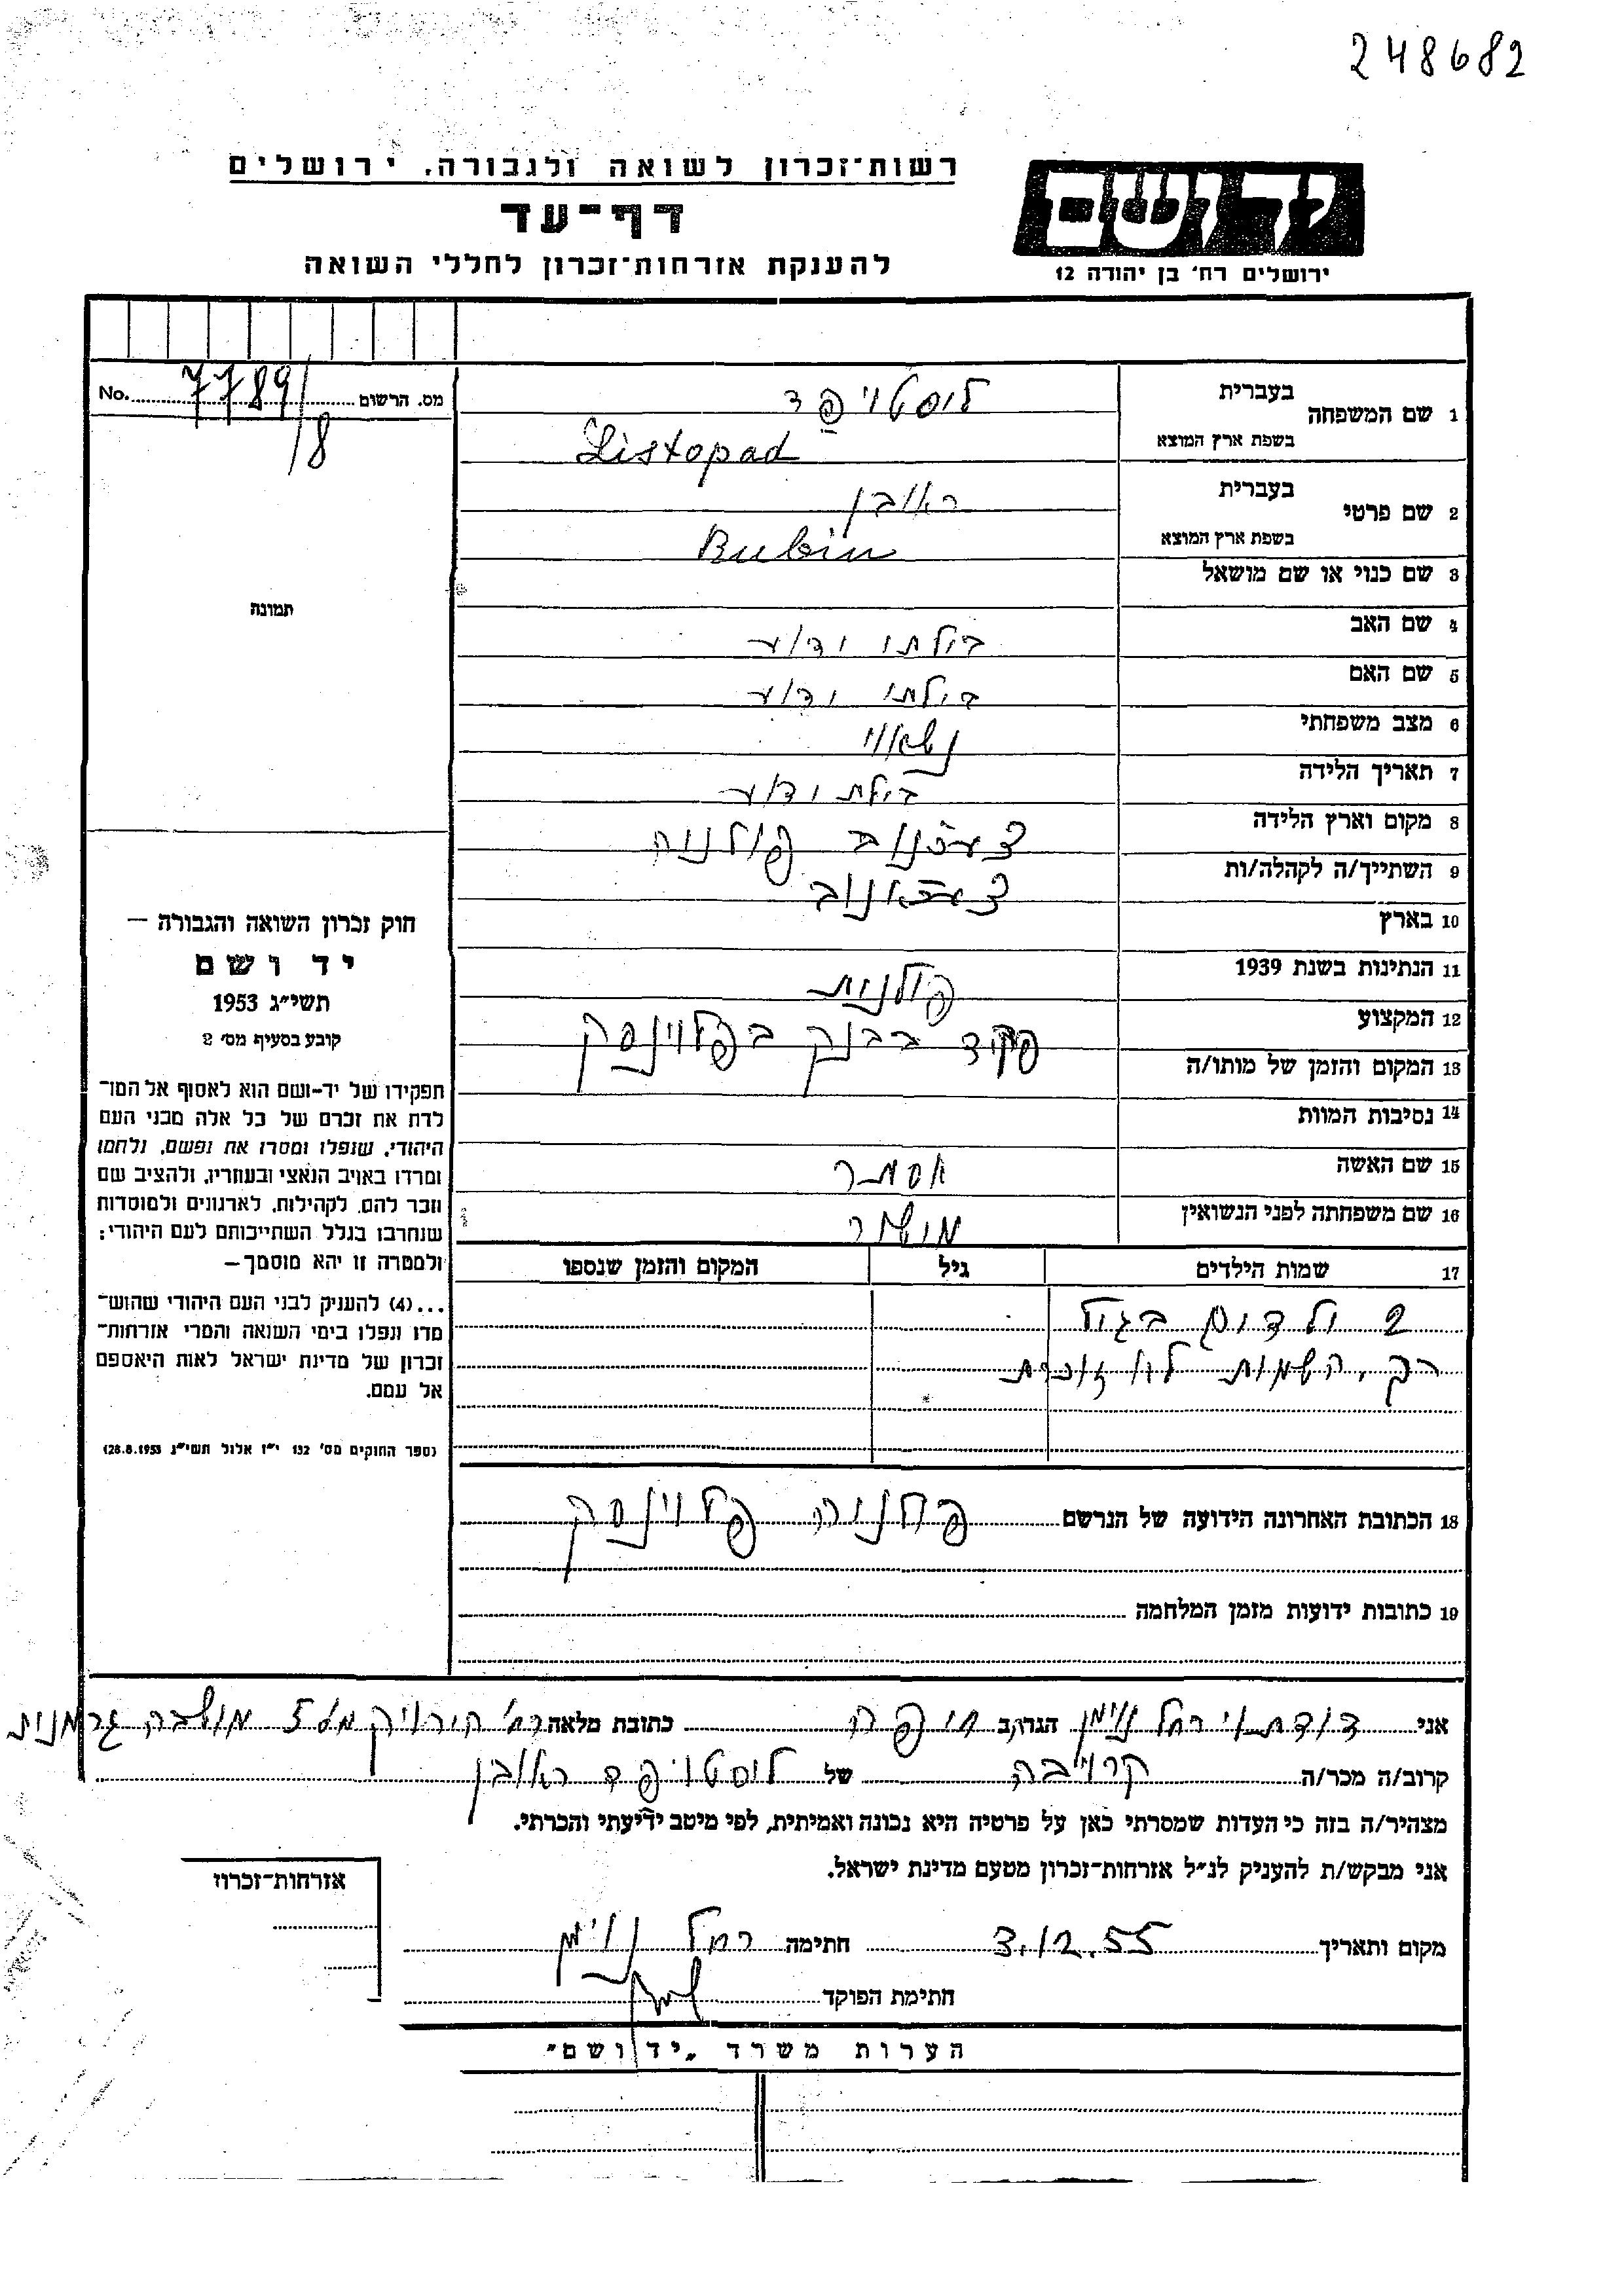 248682
רשות־זכרון לשואה ולגבורה. ירושלים
דף־עד
להענקת אזרחות־זכרון לחללי השואה
יד ושם
ירושלים רח' בן יהודה 12
מס. הרשום 7789/8 No.
בעברית
1 שם המשפחה
בשפת ארץ המוצא
לוסטויפד
Listopad
בעברית
2 שם פרטי
בשפת ארץ המוצא
ראובן
Rubin
3 שם כנוי או שם מושאל
4 שם האב בילתו ודוע
5 שם האם בילתו ודוע
6 מצב משפחתי נשאוי
7 תאריך הלידה בילת ודוע
8 מקום וארץ הלידה פולניה
9 השתייך/ה לקהלה/ות
10 בארץ
11 הנתינות בשנת 1939 פולנית
12 המקצוע פקיד בבנק
13 המקום והזמן של מותו/ה
14 נסיבות המוות
15 שם האשה אסתר
16 שם משפחתה לפני הנשואין
17 שמות הילדים גיל המקום והזמן שנספו
2 ולדים בגיל
רק, השמות לו זוכרת
18 הכתובת האחרונה הידועה של הנרשם
19 כתובות ידועות מזמן המלחמה
תמונה
חוק זכרון השואה והגבורה —
יד ושם
תשי״ג 1953
קובע בסעיף מס' 2
תפקידו של יד-ושם הוא לאסוף אל המו־
לדת את זכרם של כל אלה מבני העם
היהודי, שנפלו ומסרו את נפשם, נלחמו
ומרדו באויב הנאצי ובעוזריו, ולהציב שם
וזכר להם, לקהילות, לארגונים ולמוסדות
שנחרבו בגלל השתייכותם לעם היהודי;
ולמטרה זו יהא מוסמך—
...(4) להעניק לבני העם היהודי שהוש־
מדו ונפלו בימי השואה והמרי אזרחות־
זכרון של מדינת ישראל לאות היאספם
אל עמם.
(ספר החוקים מס' 132 י״ז אלול תשי״ג 28.8.1953)
אני דודתוי רחל ניימן הגר/ב חיפה כתובת מלאה רח' 5 מושבה גרמנית
קרוב/ה מכר/ה קרויבה של לוסטויפד ראובן
מצהיר/ה בזה כי העדות שמסרתי כאן על פרטיה היא נכונה ואמיתית, לפי מיטב ידיעתי והכרתי.
אני מבקש/ת להעניק לנ״ל אזרחות־זכרון מטעם מדינת ישראל.
אזרחות־זכרון
מקום ותאריך 3.12.55 חתימה רחל ניימן
חתימת הפוקד
הערות משרד „יד ושם״